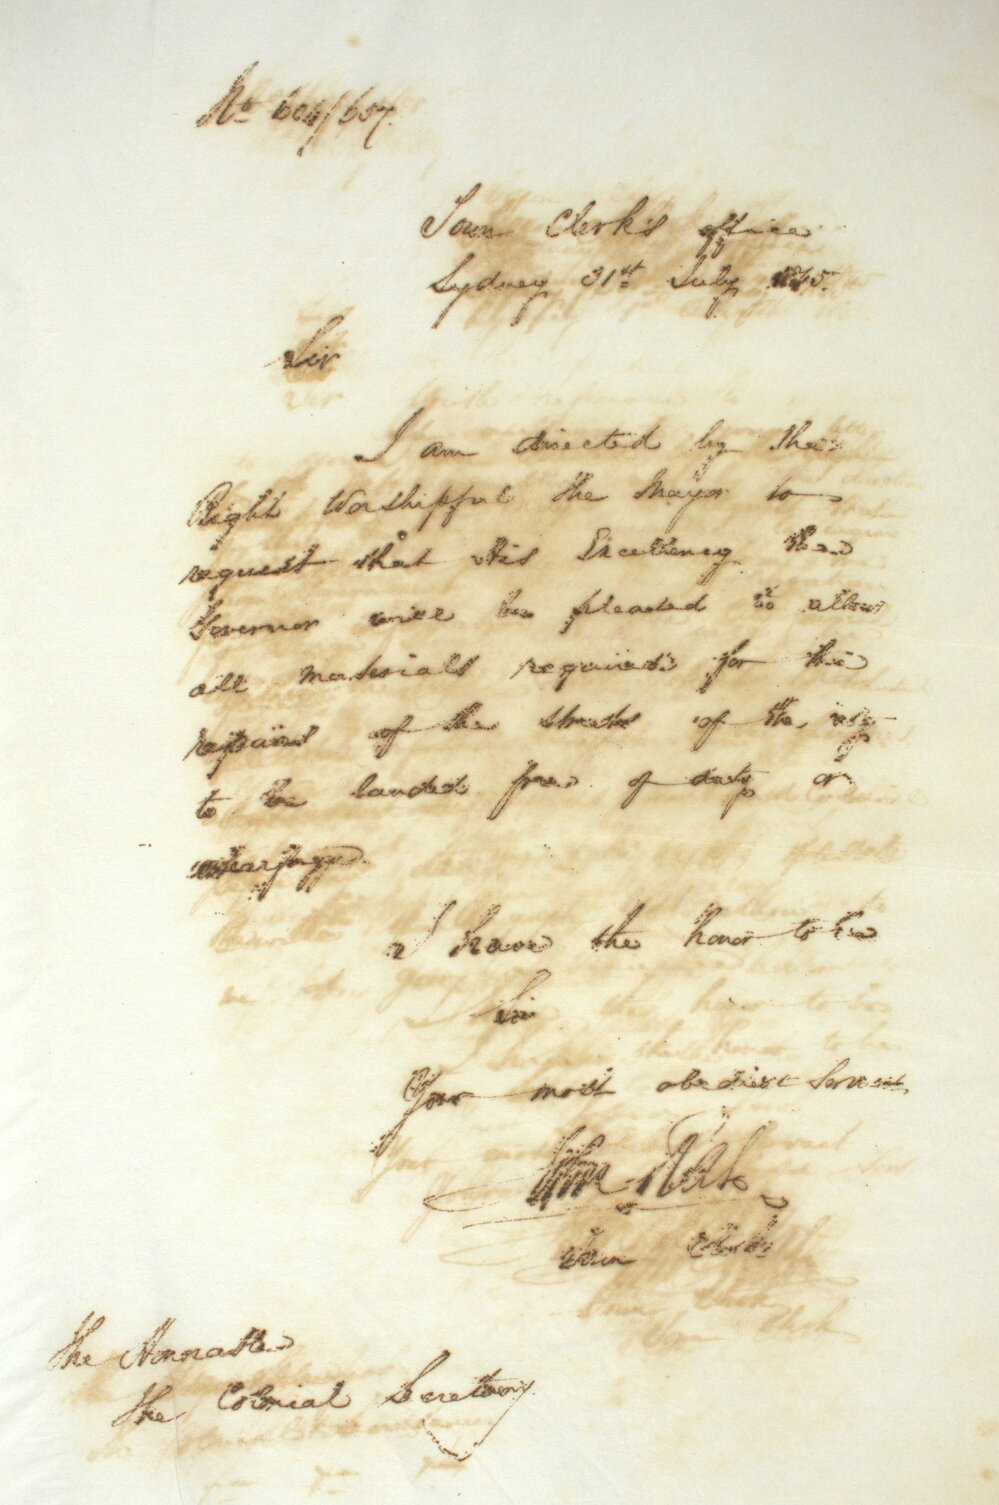 No 604/657.
Town Clerk's office
Sydney 31st July 1845.
Sir
I am directed by the
Right Worshipful the Mayor to
request that His Excellency the
Governor will be pleased to allow
all materials required for the
repairs of the streets of the city
to be landed free of duty or
wharfage.
I have the honor to be
Sir
Your most obedient Servant
Town Clerk
The Honorable
The Colonial Secretary